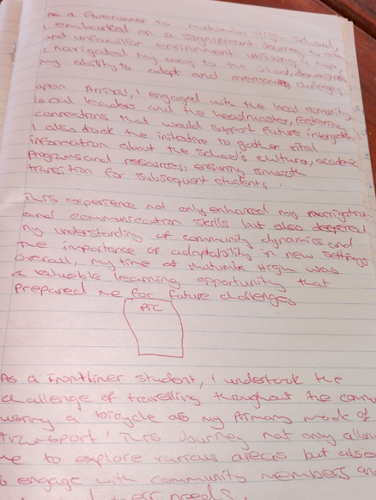 As a forerunner to mutumba High School,
I embarked on a significant journey to an
and unfamiliar environment. utilising a map
I navigated my way to the school, demonstrating
my ability to adapt and overcome challenges
upon Arrival, I engaged with the local community
local leaders and the headmaster, fostering
connections that would support future
I also took the initiative to gather vital
information about the school's culture, academic
programs and resources, ensuring smooth
transition for subsequent students.
This experience not only enhanced my navigation
and communication skills but also deepened
my understanding of community dynamics and
the importance of adaptability in new settings
overall, my time at mutumba High was
a valuable learning opportunity that
prepared me for future challenges
PIC
As a frontliner student, I undertook the
challenge of travelling throughout the
using a bicycle as my primary mode of
transport! This journey not only allow
me to explore various areas but also
to engage with community members and
needs.